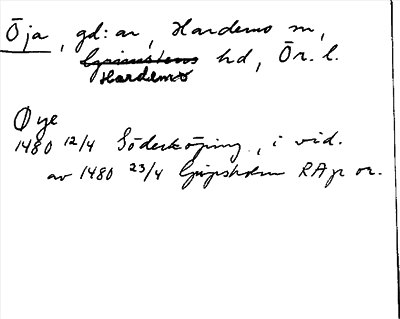 Öja, gd:ar, Hardemo sn,
Grimstens hd, Ör. l.
Hardemo
Øye
1480 12/4 Söderköping, i vid.
av 1480 23/4 Gripsholm RAp or.